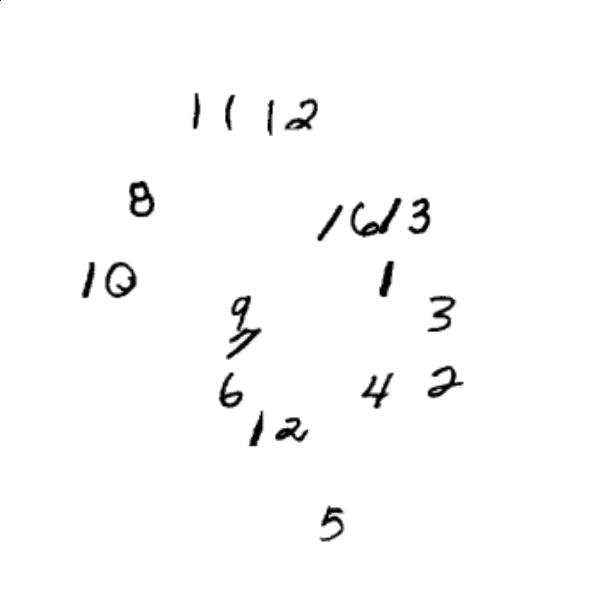 11 12
8
16 13
10
1
9
3
7
6
4
2
12
5